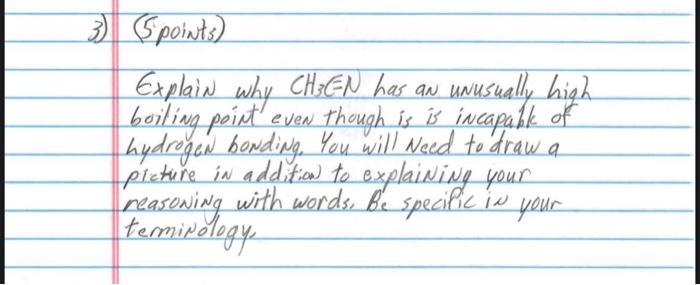 3) (5 points)
Explain why CH3C≡N has an unusually high
boiling point even though is is incapable of
hydrogen bonding. You will need to draw a
picture in addition to explaining your
reasoning with words. Be specific in your
terminology.